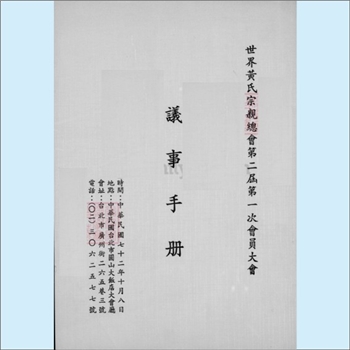 世界黃氏宗親總會第二屆第一次會員大會
議事手册
時間：中華民國七十二年十月八日
地點：中華民國台北市圓山大飯店大會廳
會址：台北市廣州街二六五巷三號
電話：(〇二)三〇六二五七七號